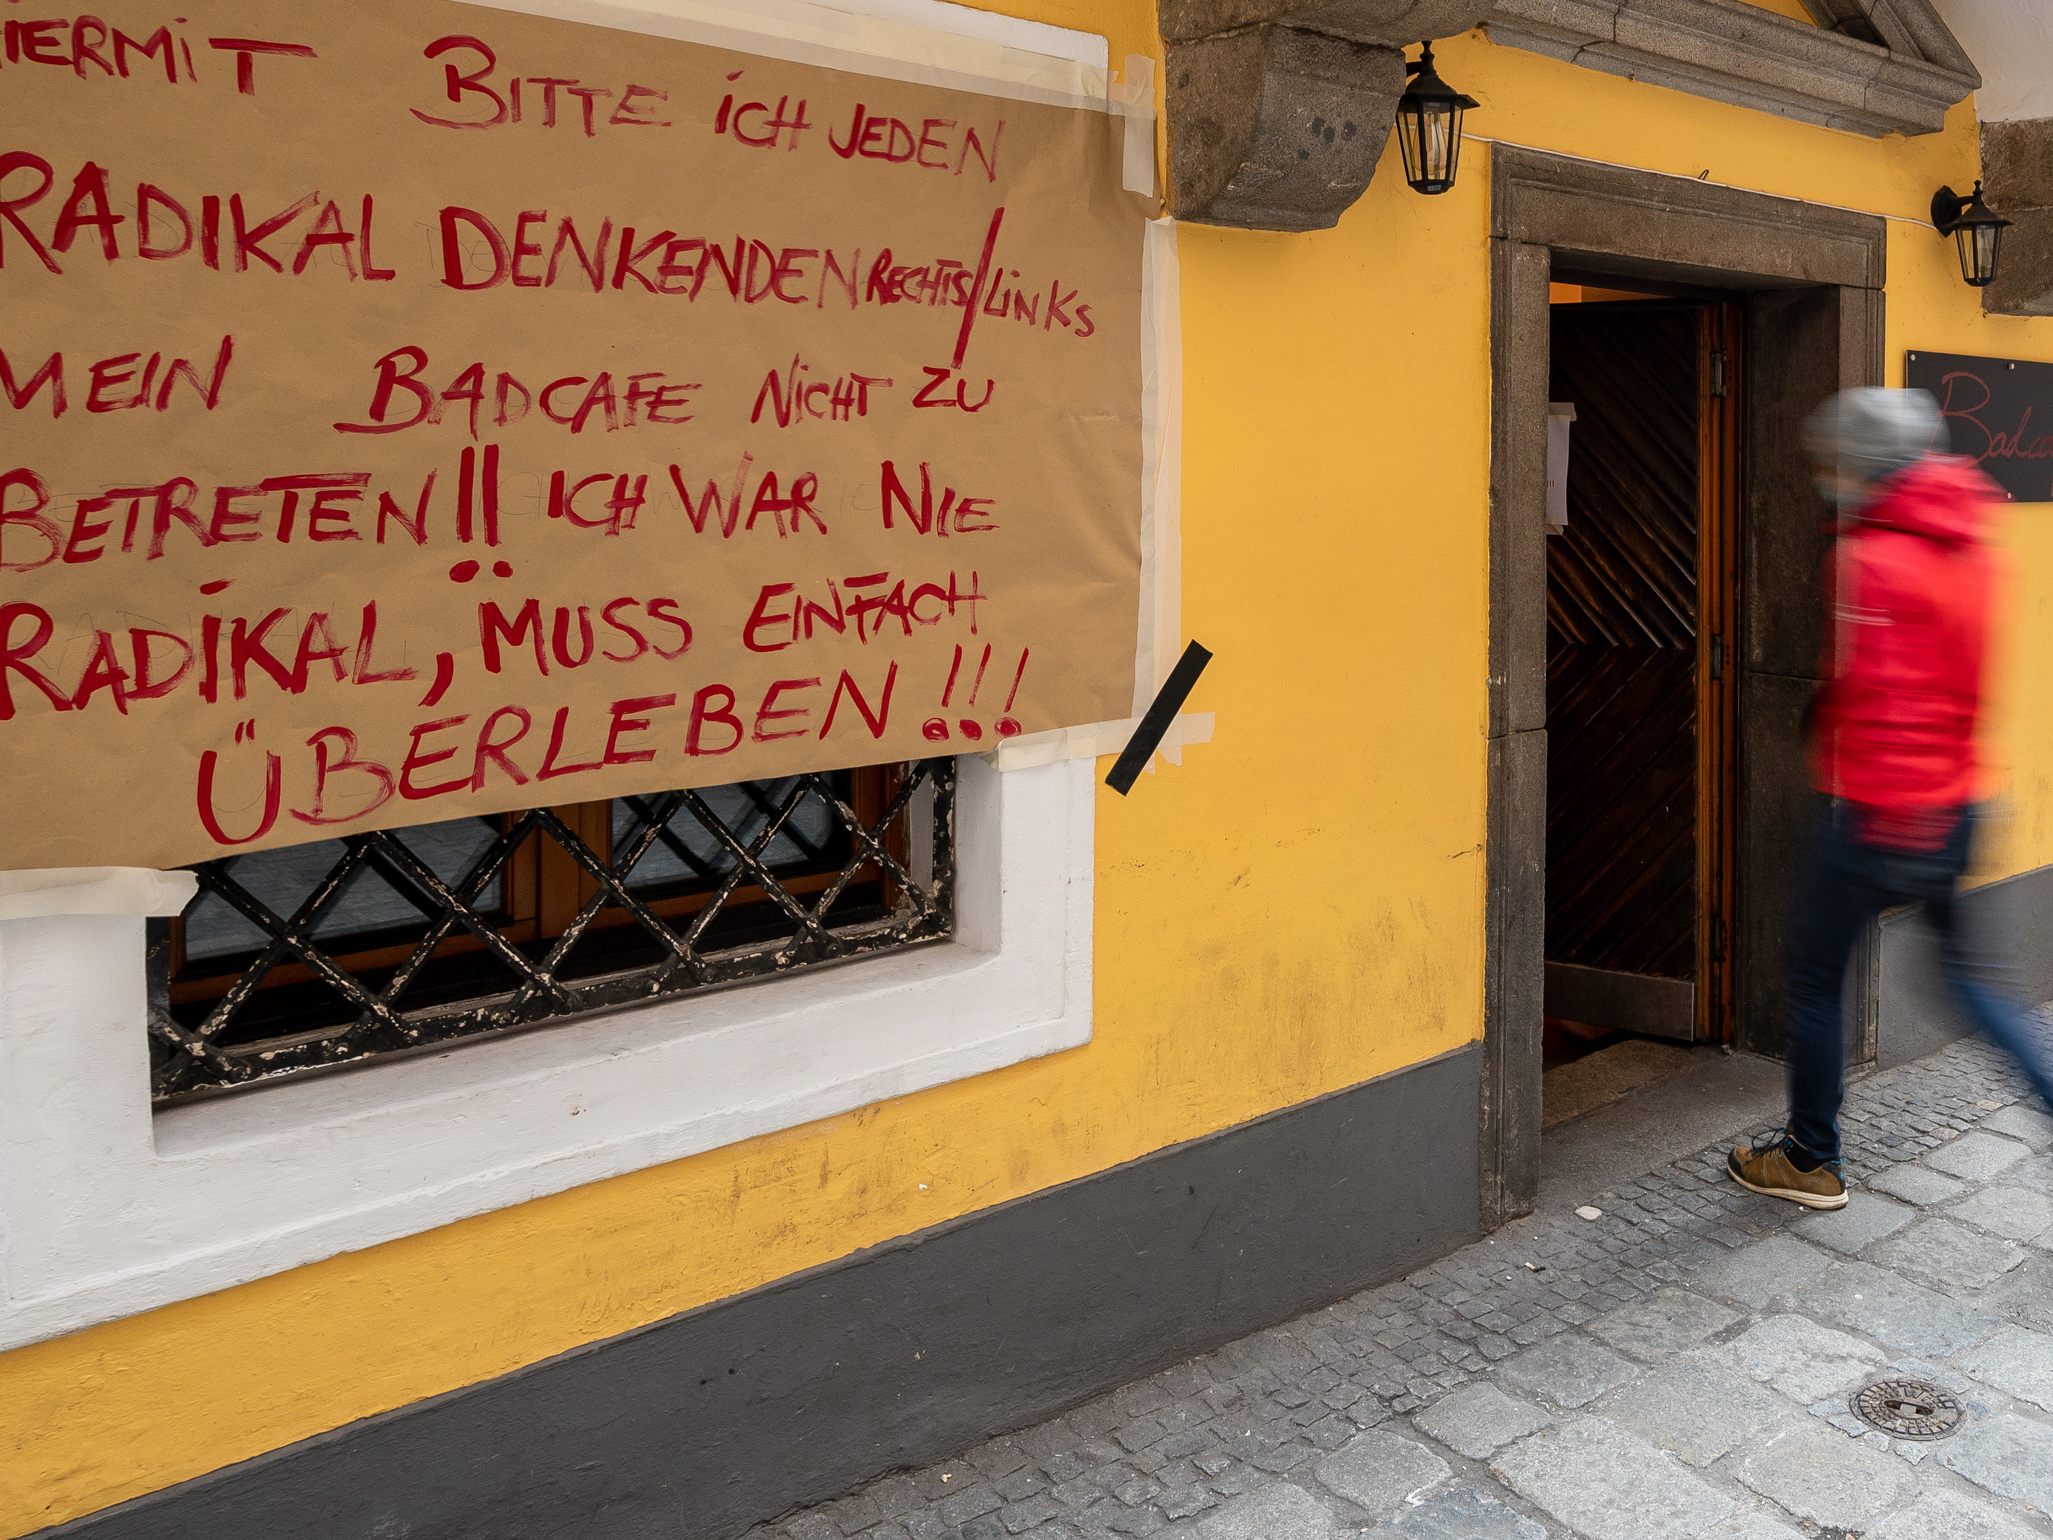 IERMIT BITTE ICH JEDEN
RADIKAL DENKENDEN RECHTS/LINKS
MEIN BADCAFE NICHT ZU
BETRETEN!! ICH WAR NIE
RADIKAL, MUSS EINFACH
ÜBERLEBEN!!!
Badca